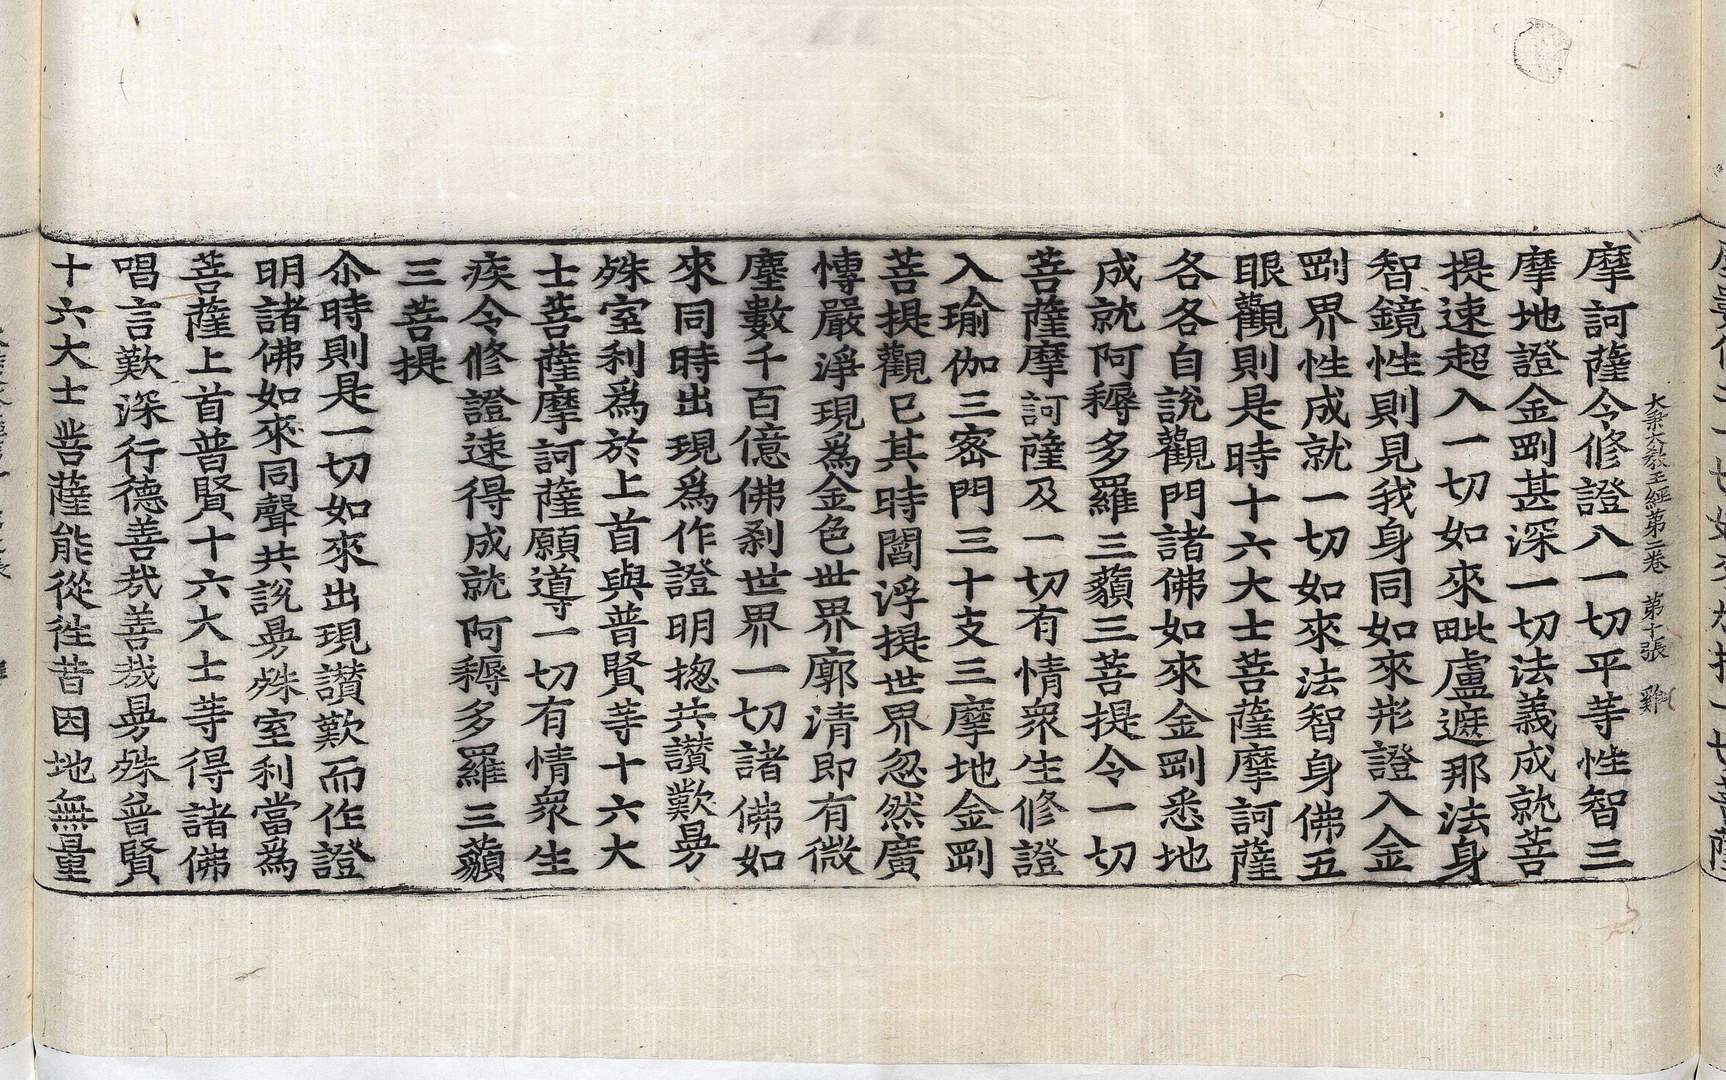 大乘大教王經第二卷　第十張　雞
摩訶薩令修證八一切平等性智三
摩地證金剛甚深一切法義成就菩
提速超入一切如來毗盧遮那法身
智鏡性則見我身同如來形證入金
剛界性成就一切如來法智身佛五
眼觀則是時十六大士菩薩摩訶薩
各各自說觀門諸佛如來金剛悉地
成就阿耨多羅三藐三菩提令一切
菩薩摩訶薩及一切有情衆生修證
入瑜伽三密門三十支三摩地金剛
菩提觀已其時閻浮提世界忽然廣
愽嚴淨現爲金色世界廓清即有微
塵數千百億佛刹世界一切諸佛如
來同時出現爲作證明揔共讃歎曼
殊室利爲於上首與普賢等十六大
士菩薩摩訶薩願導一切有情衆生
疾令修證速得成就阿耨多羅三藐
三菩提
尒時則是一切如來出現讃歎而作證
明諸佛如來同聲共說曼殊室利當爲
菩薩上首普賢十六大士等得諸佛
唱言歎深行德善哉善哉曼殊普賢
十六大士菩薩能從徃昔因地無量